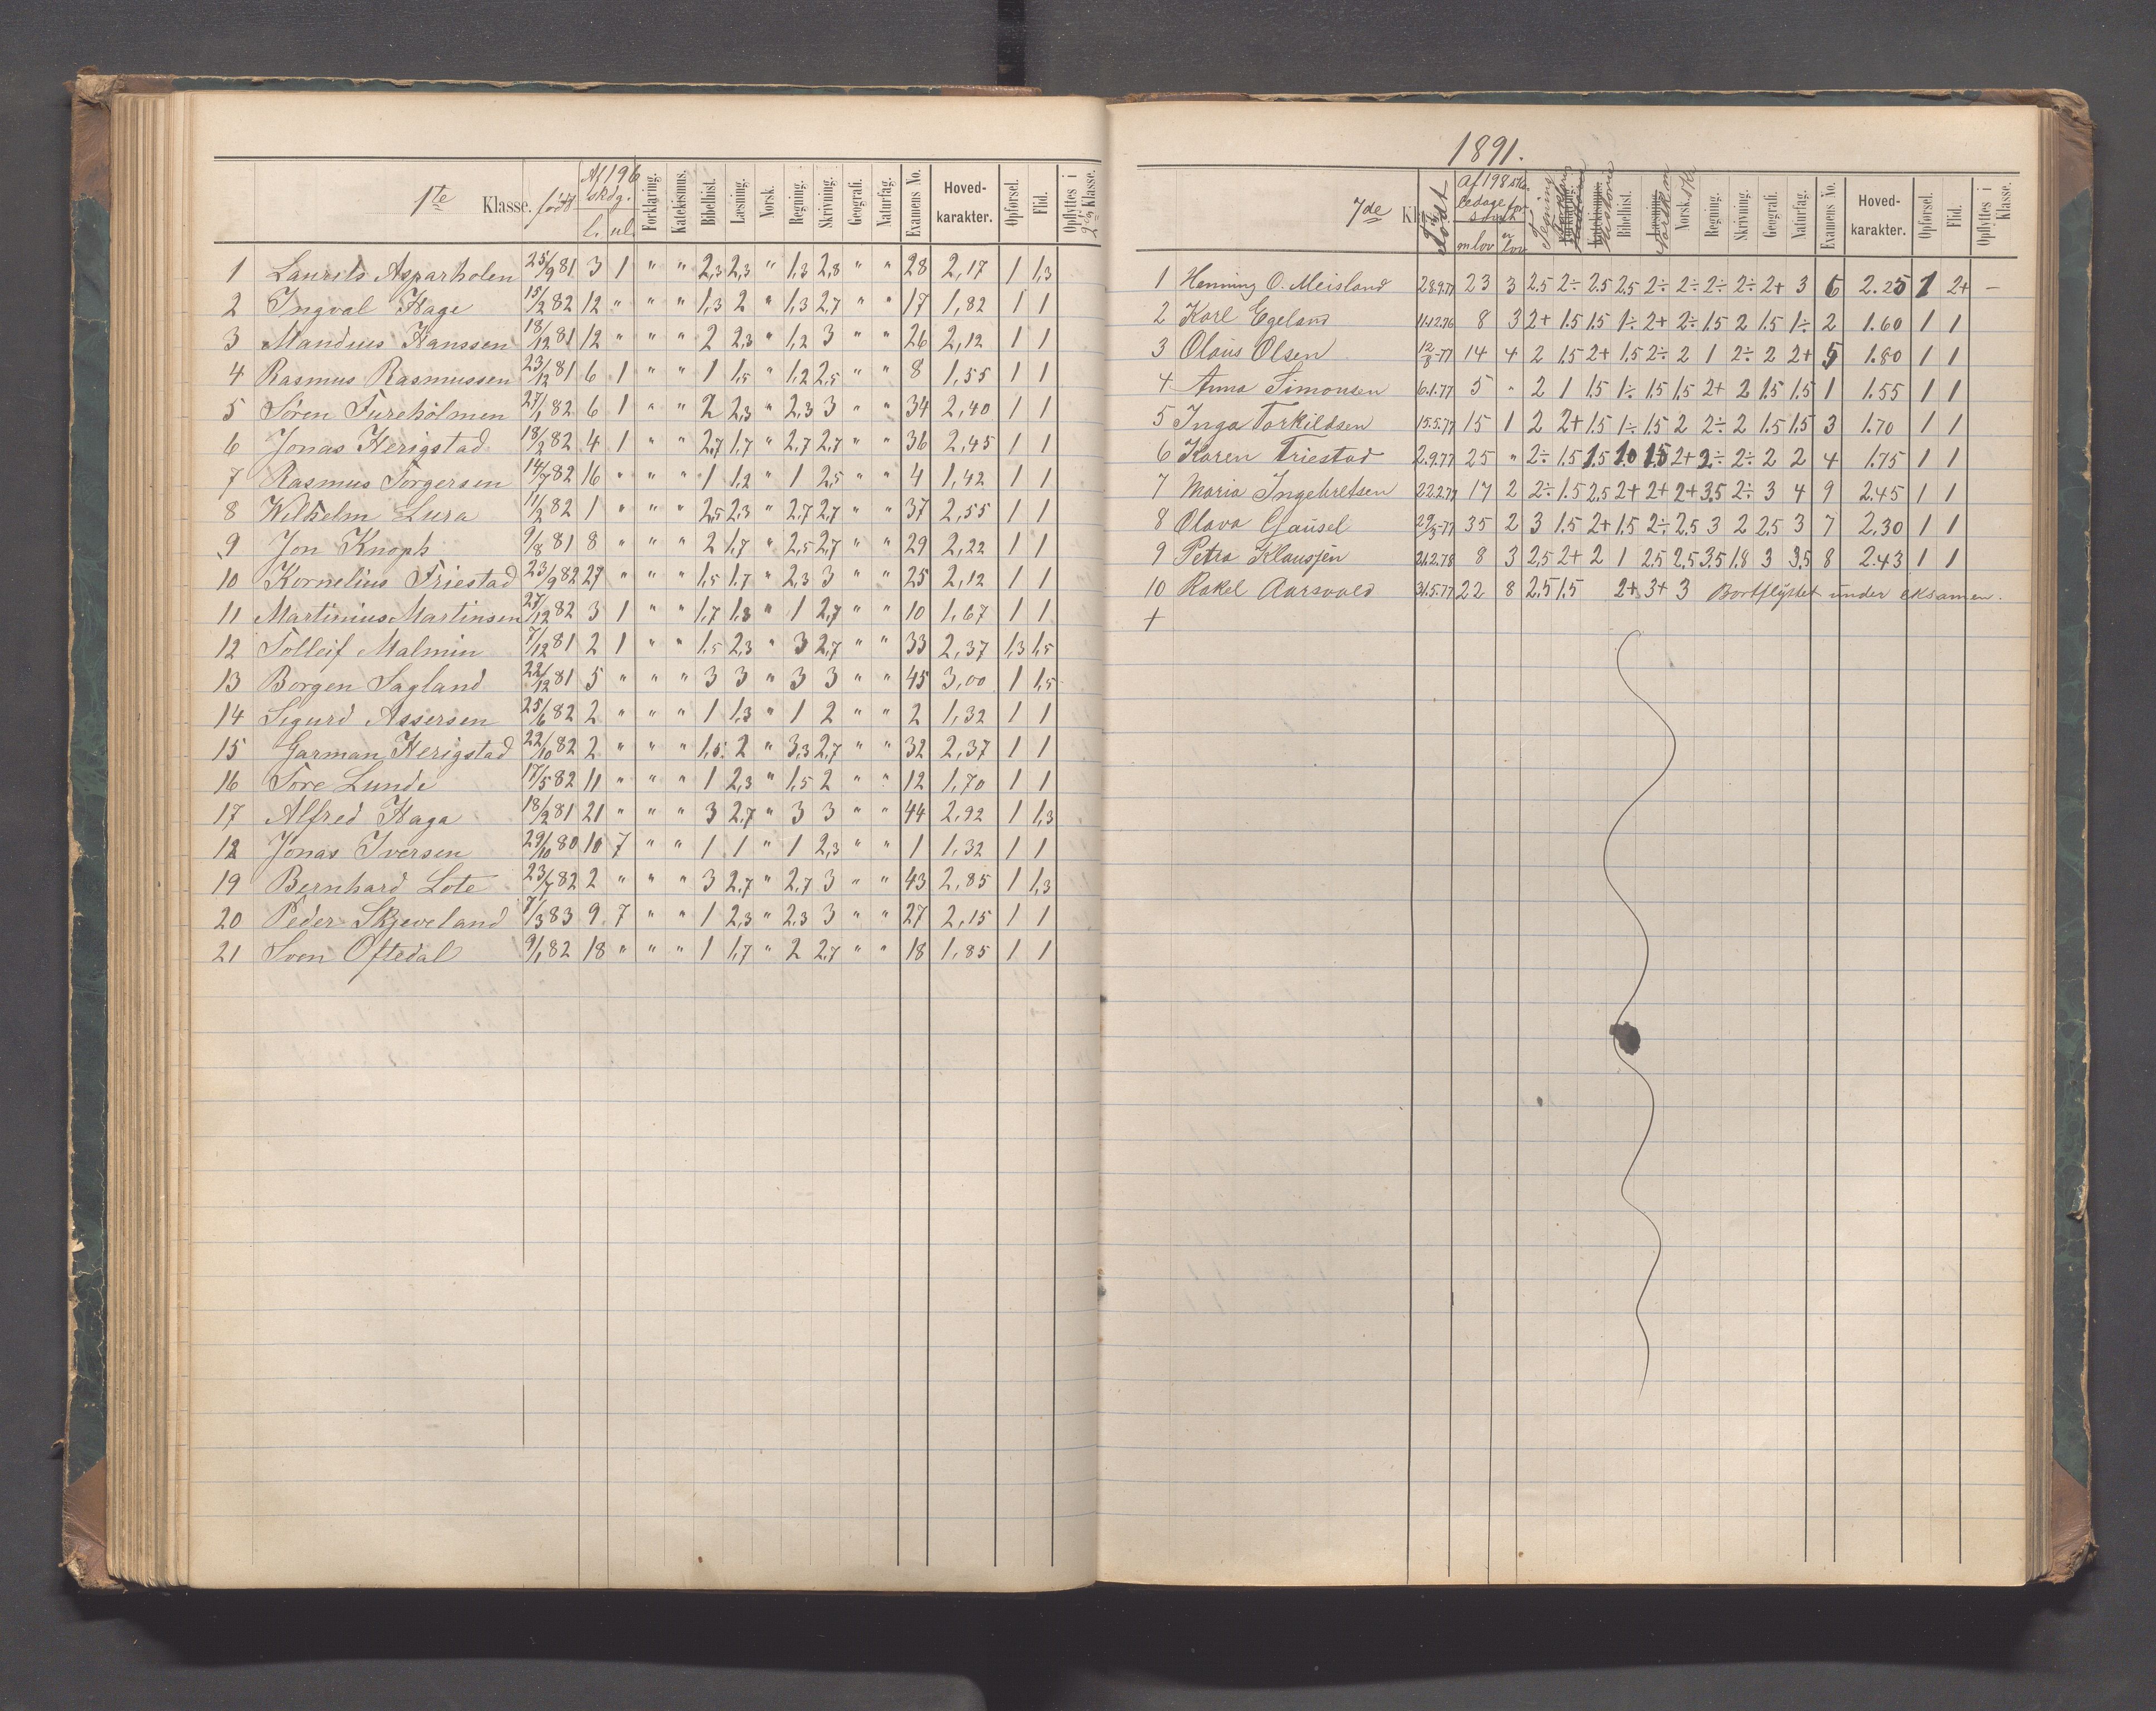 1te Klasse. født Af 196 skdg. l. ul. Forklaring. Katekismus. Bibelhist. Læsning. Norsk. Regning. Skrivning. Geografi. Naturfag. Examens No. Hoved-karakter. Opførsel. Flid. Opflyttes i 2den Klasse.
1 Laurits Asparholen 25/9 81 3 1 " " 2,3 2,3 " 1,3 2,8 " " 28 2,17 1 1,3
2 Ingval Hage 15/2 82 12 " " " 1,3 2 " 1,3 2,7 " " 17 1,82 1 1
3 Mandius Hanssen 18/12 81 12 " " " 2 2,3 " 1,2 3 " " 26 2,12 1 1
4 Rasmus Rasmussen 23/12 81 6 1 " " 1 1,5 " 1,2 2,5 " " 8 1,55 1 1
5 Søren Tureholmen 27/1 82 6 1 " " 2 2,3 " 2,3 3 " " 34 2,40 1 1
6 Jonas Herigstad 18/2 82 4 1 " " 2,7 1,7 " 2,7 2,7 " " 36 2,45 1 1
7 Rasmus Torgersen 14/7 82 16 " " " 1 1,2 " 1 2,5 " " 4 1,42 1 1
8 Wilhelm Lura 11/2 82 1 " " " 2,5 2,3 " 2,7 2,7 " " 37 2,55 1 1
9 Jon Knoph 9/8 81 8 " " " 2 1,7 " 2,5 2,7 " " 29 2,22 1 1
10 Kornelius Friestad 23/9 82 27 " " " 1,5 1,7 " 2,3 3 " " 25 2,12 1 1
11 Martinius Martinsen 27/12 82 3 1 " " 1,7 1,3 " 1 2,7 " " 10 1,67 1 1
12 Tolleif Malmin 7/12 81 2 1 " " 1,5 2,3 " 3 2,7 " " 33 2,37 1,3 1,5
13 Borgen Sagland 22/12 81 5 " " " 3 3 " 3 3 " " 45 3,00 1 1,5
14 Sigurd Assersen 25/6 82 2 " " " 1 1,3 " 1 2 " " 2 1,32 1 1
15 Garman Herigstad 22/10 82 2 " " " 1,5 2 " 3,3 2,7 " " 32 2,37 1 1
16 Tore Lunde 17/5 82 11 " " " 1 2,3 " 1,5 2 " " 12 1,70 1 1
17 Alfred Haga 18/2 81 21 " " " 3 2,7 " 3 3 " " 44 2,92 1 1,3
18 Jonas Iversen 29/10 80 10 7 " " 1 1 " 1 2,3 " " 1 1,32 1 1
19 Bernhard Lote 23/7 82 2 " " " 3 2,7 " 2,7 3 " " 43 2,85 1 1,3
20 Peder Skjeveland 7/3 83 9 7 " " 1 2,3 " 2,3 3 " " 27 2,15 1 1
21 Sven Oftedal 9/1 82 18 " " " 1 1,7 " 2 2,7 " " 18 1,85 1 1
1891.
7de Kl. Født Af 198 skoledage forsømt m lov u lov Tegning Historie Bibelhist. Norsk Regning. Skrivning. Geografi. Naturfag. Examens No. Hoved-karakter. Opførsel. Flid. Opflyttes i Klasse.
1 Henning O. Meisland 28.9.77 23 3 2.5 2÷ 2.5 2.5 2÷ 2÷ 2÷ 2÷ 2+ 3 6 2.25 1 2+ —
2 Karl Egeland 11.12.76 8 3 2+ 1.5 1.5 1÷ 2+ 2÷ 1.5 2 1.5 1÷ 2 1.60 1 1
3 Olaus Olsen 12/8-77 14 4 2 1.5 2+ 1.5 2÷ 2 1 2÷ 2 2+ 5 1.80 1 1
4 Anna Simonsen 6.1.77 5 " 2 1 1.5 1÷ 1.5 1.5 2+ 2 1.5 1.5 1 1.55 1 1
5 Inga Torkildsen 15.5.77 15 1 2 2+ 1.5 1÷ 1.5 2 2÷ 2 1.5 1.5 3 1.70 1 1
6 Karen Friestad 2.9.77 25 " 2÷ 1.5 1.5 1.0 1.5 2+ 2÷ 2÷ 2 2 4 1.75 1 1
7 Maria Ingebretsen 22.2.77 17 2 2÷ 1.5 2.5 2+ 2+ 2+ 3.5 2÷ 3 4 9 2.45 1 1
8 Olava Gausel 29/3-77 35 2 3 1.5 2+ 1.5 2÷ 2.5 3 2 2.5 3 7 2.30 1 1
9 Petra Klausen 21.2.78 8 3 2.5 2+ 2 1 2.5 2.5 3.5 1.8 3 3.5 8 2.43 1 1
10 Rakel Aarsvold 31.5.77 22 8 2.5 1.5 2+ 3+ 3 Bortflyttet under eksamen.
+